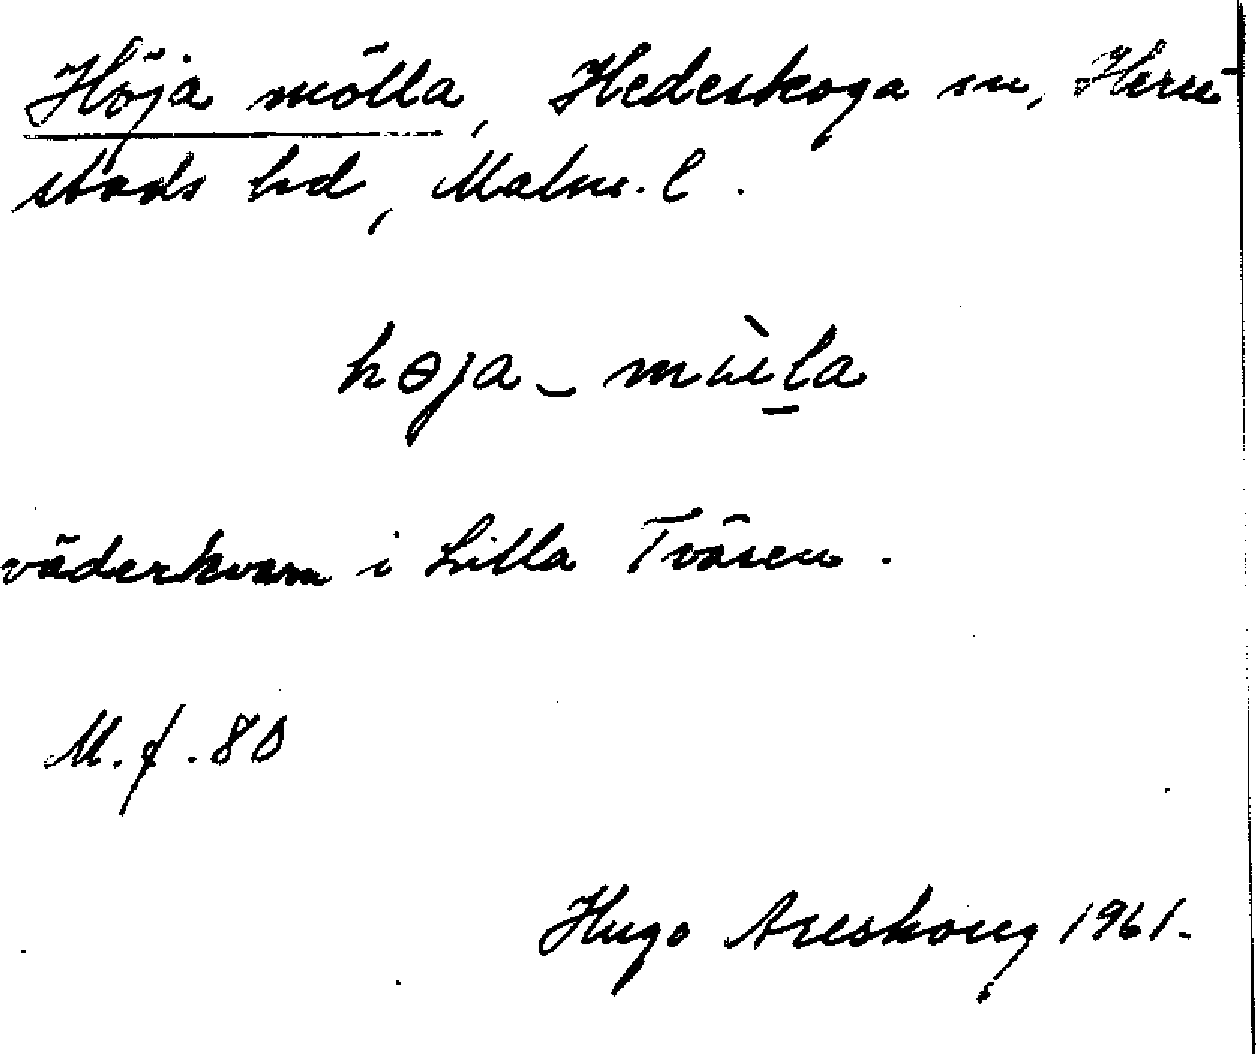 Höja mölla, Hedeskoga sn, Herre-
stads hd, Malm. l.
höja-
väderkvarn i Lilla Tvären.
M.f. 80
Hugo Areskoug 1961.